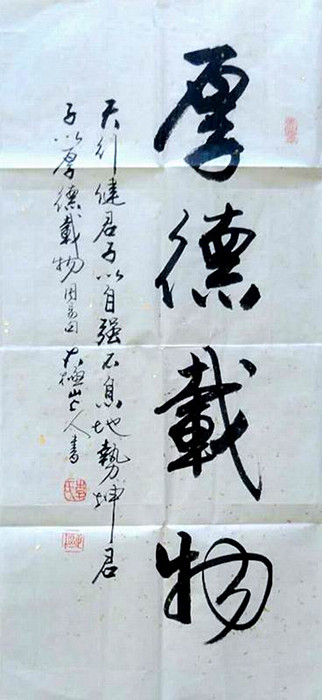 厚德載物
天行健君子以自强不息地勢坤君
子以厚德載物周易曰
人書